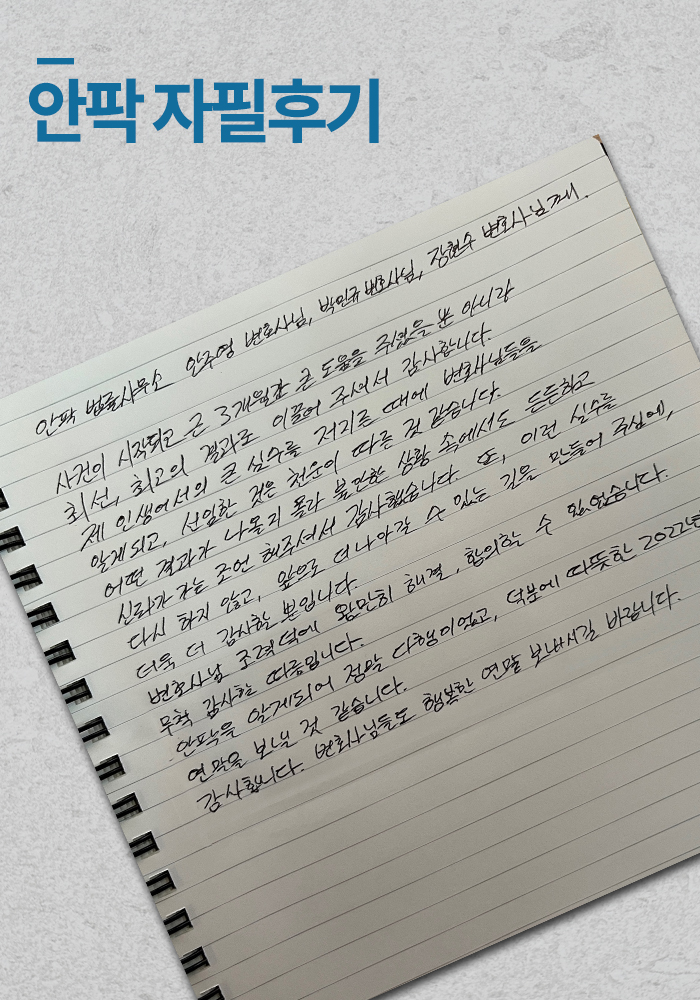 안팍 자필후기
안팍 법률사무소 안주영 변호사님, 박민규 변호사님, 장현수 변호사님께.
사건이 시작되고 근 3개월간 큰 도움을 주셨을 뿐 아니라
최선, 최고의 결과로 이끌어 주셔서 감사합니다.
제 인생에서의 큰 실수를 저지른 때에 변호사님들을
알게되고, 선임한 것은 천운이 따른 것 같습니다.
어떤 결과가 나올지 몰라 불안한 상황 속에서도 든든하고
신뢰가 가는 조언 해주셔서 감사했습니다. 또, 이런 실수를
다시 하지 않고, 앞으로 더 나아갈 수 있는 길을 만들어 주심에,
더욱 더 감사할 뿐입니다.
변호사님 조력 덕에 원만히 해결, 합의할 수 있었습니다.
무척 감사할 따름입니다.
안팍을 알게되어 정말 다행이었고, 덕분에 따뜻한 2022년
연말을 보낼 것 같습니다.
감사합니다. 변호사님들도 행복한 연말 보내시길 바랍니다.